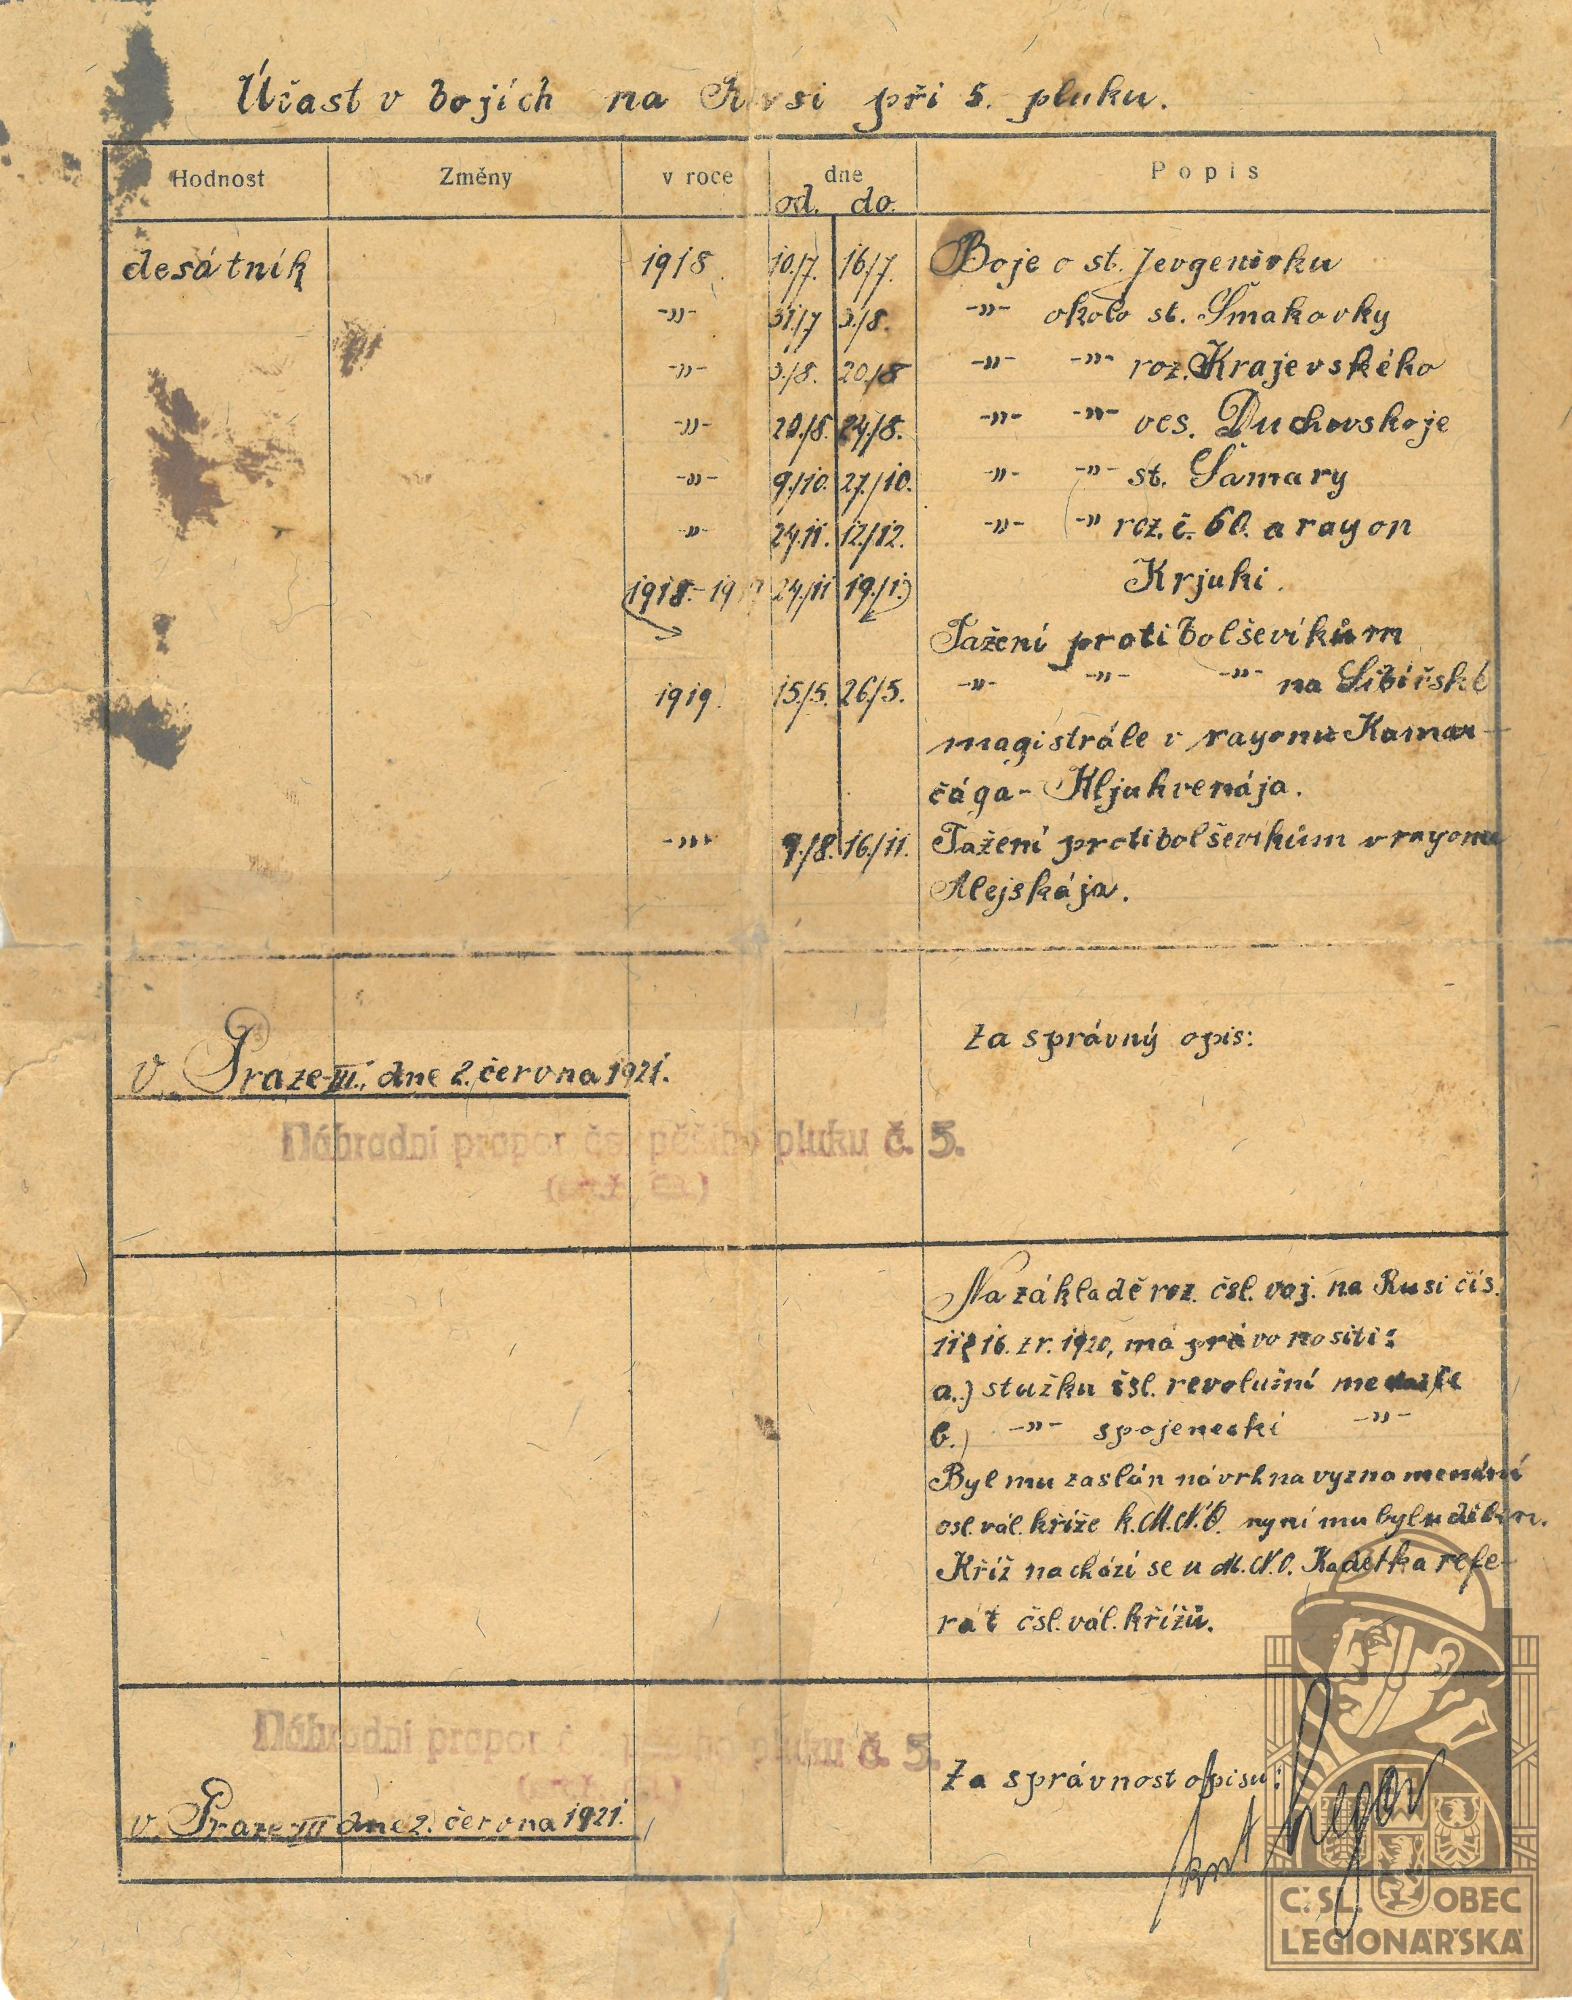 Účast v bojích na Rusi při 5. pluku.
Hodnost Změny v roce dne Popis
od. do.
desátník 1918 10./7. 16/7. Boje o st. Jevgenievku
-"- 31./7 3./8. -"- okolo st. Šmakovky
-"- 3./8. 20./8 -"- -"- roz. Krajevského
-"- 20./8. 24/8. -"- -"- ves. Duchovskoje
-"- 9./10. 27./10. -"- -"- st. Samary
-"- 24.11. 12./12. -"- -"- roz. č. 60. a rayon
1918.- 24./11 19./1. Krjuki.
Tažení proti bolševikům
1919. 15./5. 26/5. -"- -"- -"- na Sibiřské
magistrále v rayonu Kamar-
čága - Kljukvenája.
-"- 9./8. 16./11. Tažení proti bolševikům v rayonu
Alejskája.
Za správný opis:
V Praze-III., dne 2. června 1921.
Náhradní prapor čs. pěšího pluku č. 5.
Na základě roz. čsl. voj. na Rusi čís.
16. z r. 1920, má právo nositi:
a.) stužku čsl. revoluční medaile
b.) -"- spojenecki -"-
Byl mu zaslán návrh na vyznamenání
čsl. vál. kříže k. M.N.O. nyní mu byl udělen.
Kříž nachází se u M.N.O. Kadetka refe-
rát čsl. vál. křížů.
Náhradní prapor č. pluku č. 5.
Za správnost opisu:
V Praze-III dne 2. června 1921.
Č.SL. OBEC
LEGIONÁŘSKÁ